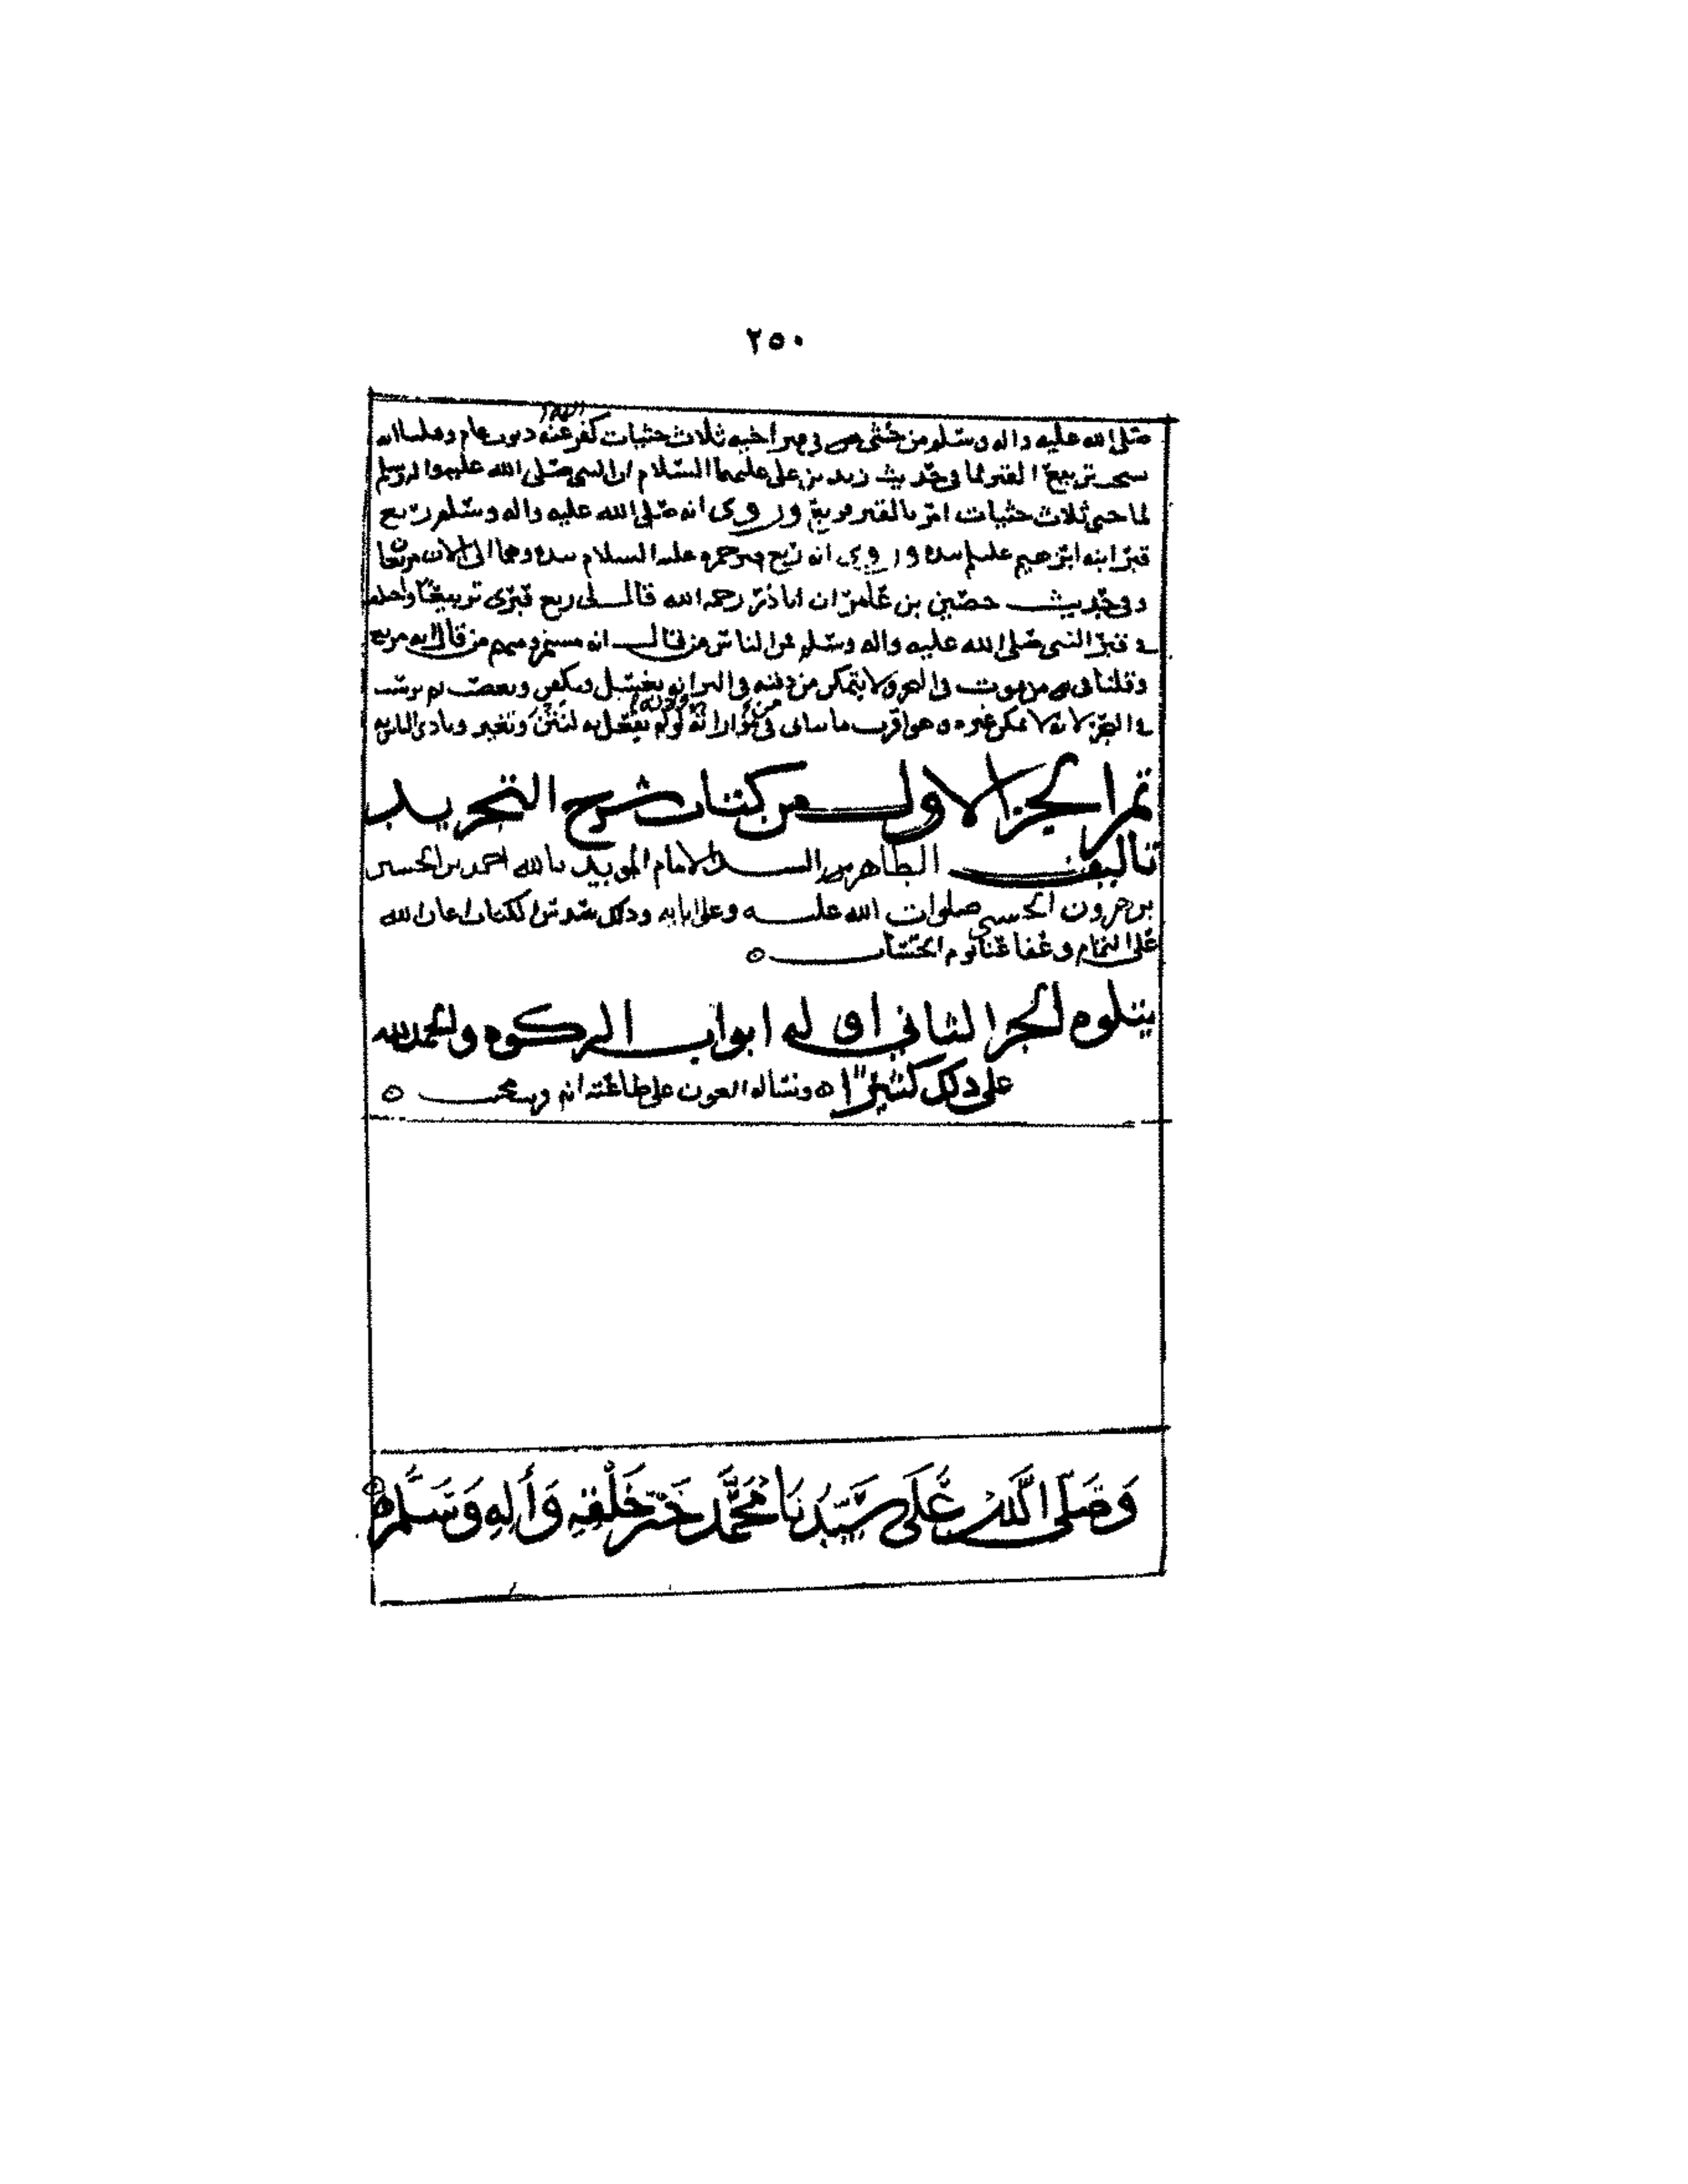 ٢٥٠
صلى الله عليه واله وسلم من حثى في قبر اخيه ثلاث حثيات كفر الله عنه ذنوب عام وقلنا انه
تربيع القبر لما في حديث زيد بن علي عليهما السلام ان النبي صلى الله عليه واله وسلم
لما حثى ثلاث حثيات امر بالقبر فربع وروى انه صلى الله عليه واله وسلم ربع
قبر ابنه ابرهيم عليلم بيده وروي انه ربع قبر حمزه عليه السلام بيده وهما الى الان مربعان
وفي حديث حصين بن عامر ان ابا ذر رحمه الله قال لي ربع قبري تربيعا
في قبر النبي صلى الله عليه واله وسلم فمن الناس من قال انه مسنم ومنهم من قال انه مربع
وقلنا في من يموت في البحر ولا يتمكن من دفنه في البر انه يغسل ويكفن ثم يرسب
في البحر لانه لا يمكن غيره وهو اقرب ما يتاتى في مواراته لو لم يفعل به لنتن وتغير وتاذى الناس به
تم الجز الاول من كتاب شرح التجريد
تاليف السيد الامام المويد بالله احمد بن الحسين
بن هرون الحسني صلوات الله عليه وعلى ابايه وذلك اعان الله
على التمام وعفا عنا يوم الحساب ه
يتلوه الجز الثاني اوله ابواب الزكوه والحمد لله
على ذلك كثيرا ه ونساله العون على طاعته انه
وَصَلى اللَّه عَلَى سَيِّدِنَا مُحَمَّد خَيْر خَلْقِهِ وَأَلِهِ وَسَلَّم ه